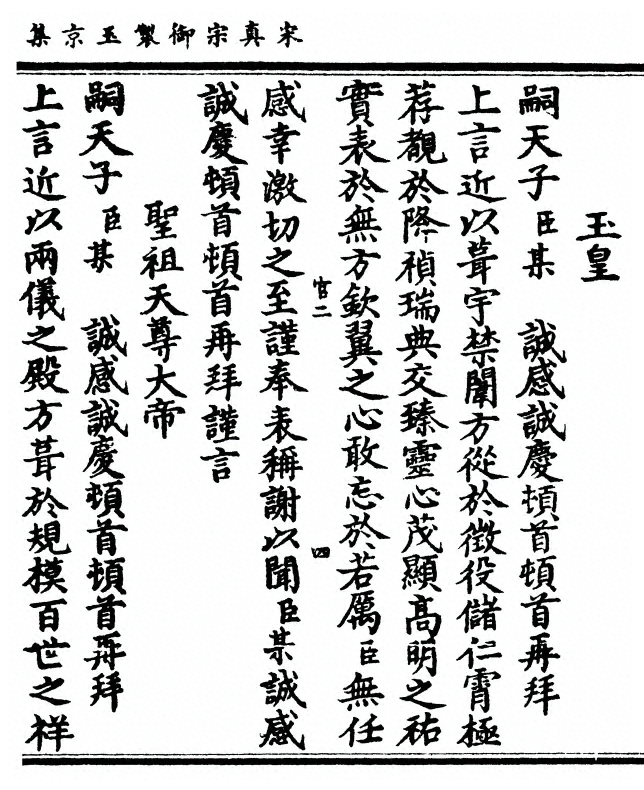 宋真宗御製玉京集
玉皇
嗣天子臣某 誠感誠慶頓首頓首再拜
上言近以葺宇禁闈方從於徵役儲仁霄極
荐觀於降禎瑞典交臻靈心茂顯高明之祐
實表於無方欽翼之心敢忘於若厲臣無任
官二 四
感幸激切之至謹奉表稱謝以聞臣某誠感
誠慶頓首頓首再拜謹言
聖祖天尊大帝
嗣天子臣某 誠感誠慶頓首頓首再拜
上言近以兩儀之殿方葺於規模百世之祥